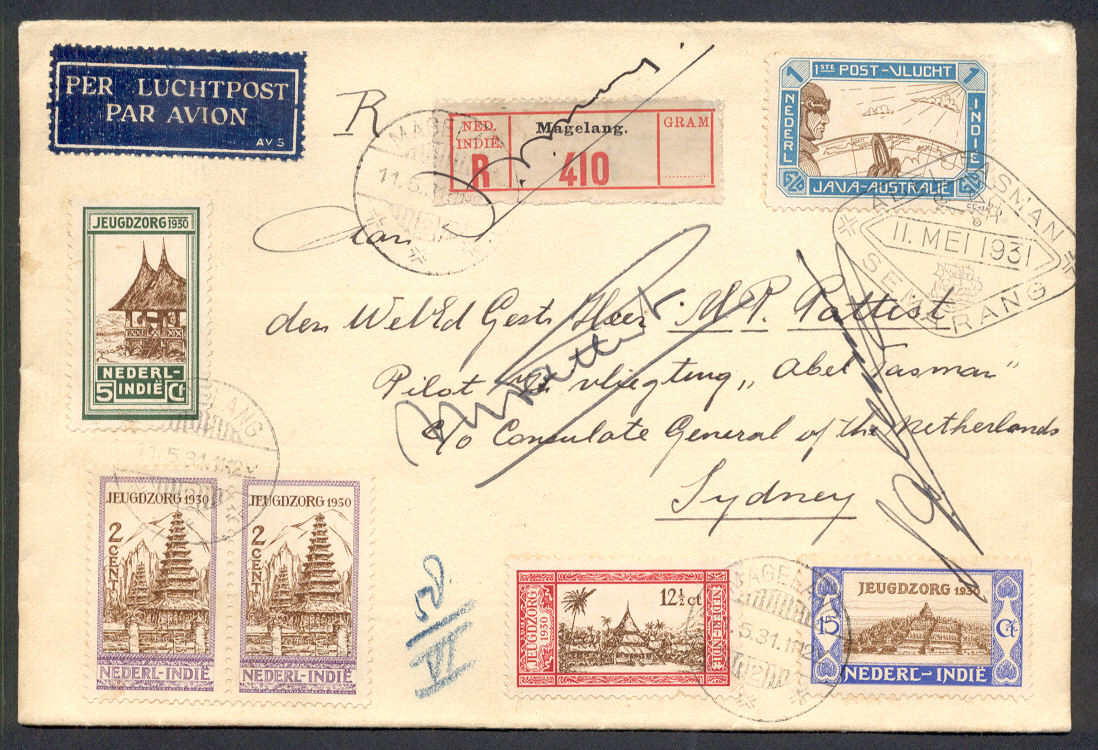 PER LUCHTPOST
PAR AVION
AVS
R
NED.
INDIË.
R
Magelang.
410
GRAM
1
1STE POST-VLUCHT
1
NEDERL
INDIË
JAVA-AUSTRALIË
11.5.31
ABEL TASMAN
11. MEI 1931
SEMARANG
JEUGDZORG 1930
NEDERL-
5 INDIË Ct
Aan
den WelEd Gestr Heer M.P. Pattist
Pilot van vliegtuig „Abel Tasman"
c/o Consulate General of the Netherlands
Sydney
MAGELANG
11.5.31.11-12
JEUGDZORG 1930
2
CENT
NEDERL-INDIË
JEUGDZORG 1930
2
CENT
NEDERL-INDIË
50
VI
JEUGDZORG
1930
12½ ct
NEDERL-INDIË
MAGELANG
.5.31.11-12
JEUGDZORG 1930
15 Ct
NEDERL-INDIË